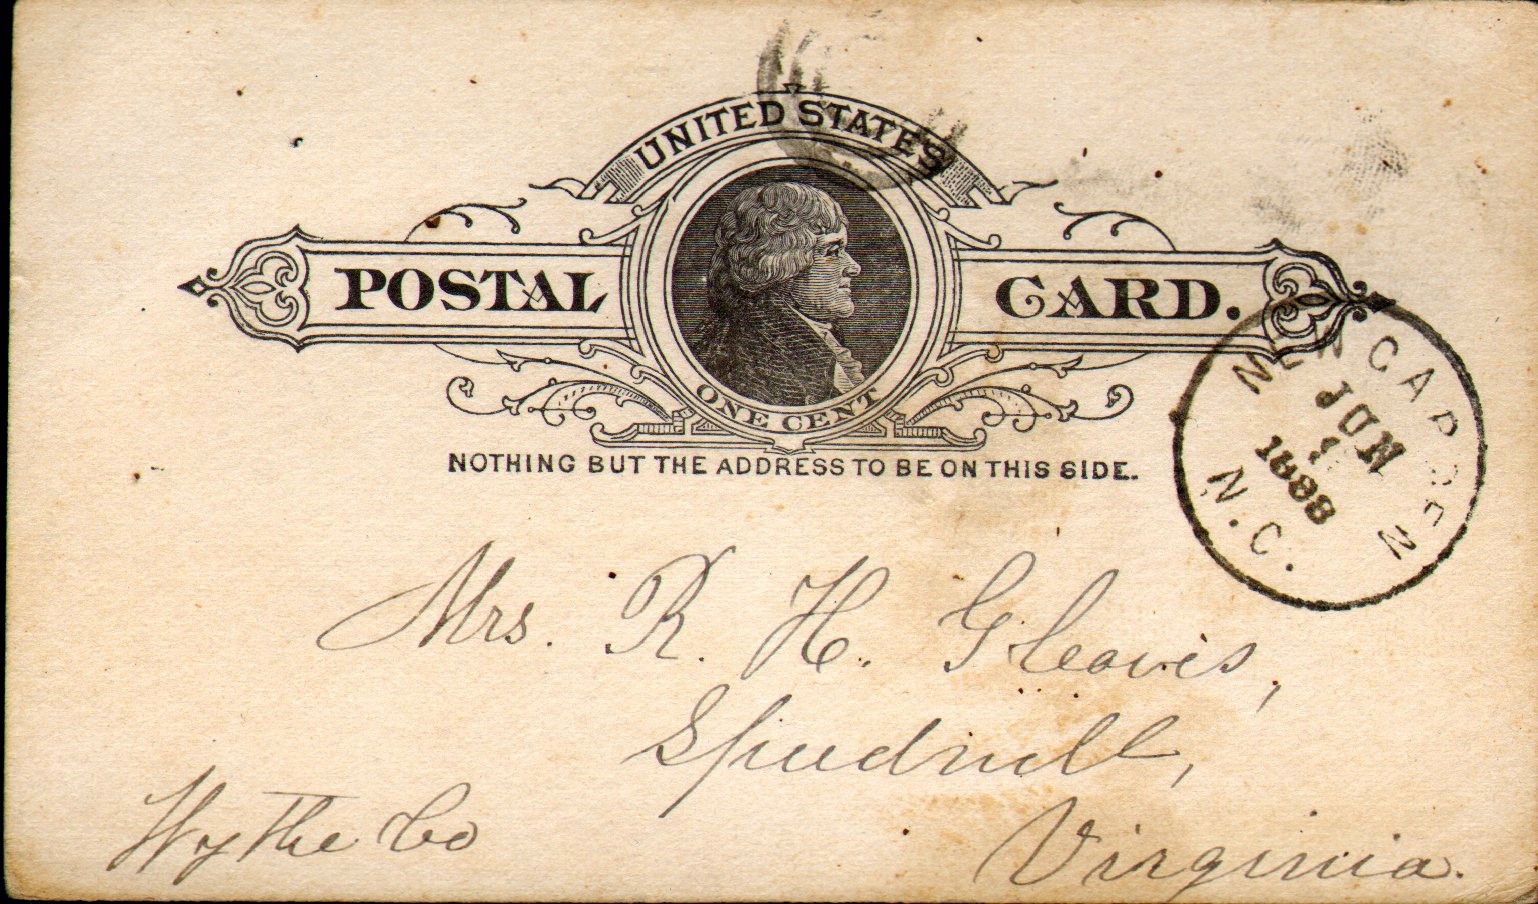 UNITED STATES
POSTAL CARD.
ONE CENT
NOTHING BUT THE ADDRESS TO BE ON THIS SIDE.
NEW GARDEN
JUN
1
1888
N.C.
Mrs. R. H. Gleaves,
Speedwell,
Wythe Co
Virginia.